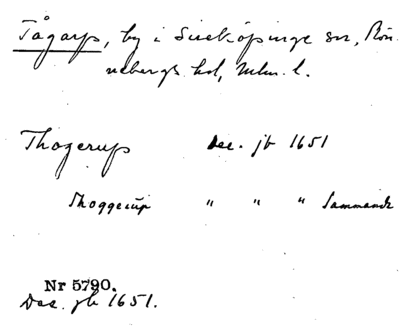 Tågarp, by i Sireköpinge sn, Rön-
nebergs hd, Mlm. l.
Thogerup Dec. jb 1651
Thoggerup " " " Sammandr
Nr 5790.
Dec. jb 1651.